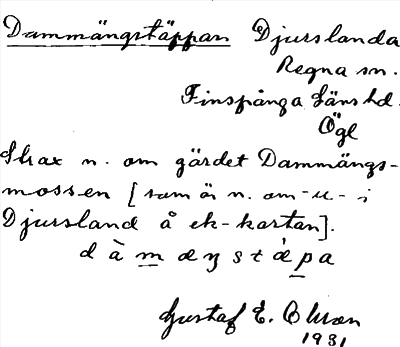 Dammängstäppan Djurslanda
Regna sn.
Finspånga läns hd.
Ögl
Strax n. om gärdet Dammängs-
mossen [som är n. om -u- i
Djursland å ek-kartan].
Gustaf E. Olsson
1931